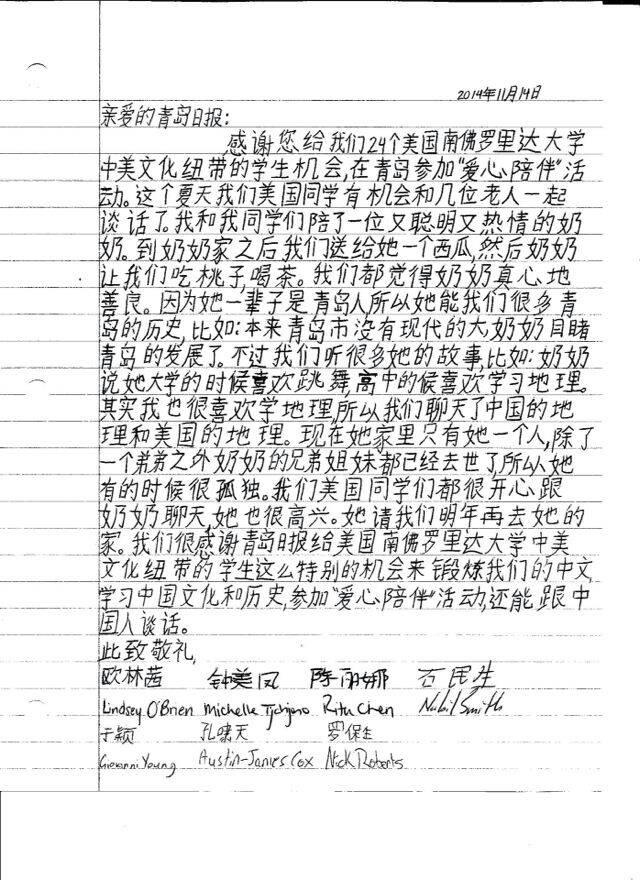 2014年11月14日
亲爱的青岛日报:
感谢您给我们24个美国南佛罗里达大学
中美文化纽带的学生机会,在青岛参加“爱心陪伴”活
动。这个夏天我们美国同学有机会和几位老人一起
谈话了。我和我同学们陪了一位又聪明又热情的奶
奶。到奶奶家之后我们送给她一个西瓜,然后奶奶
让我们吃桃子,喝茶。我们都觉得奶奶真心地
善良。因为她一辈子是青岛人,所以她能我们很多青
岛的历史,比如:本来青岛市没有现代的大,奶奶目睹
青岛的发展了。不过我们听很多她的故事,比如:奶奶
说她大学的时候喜欢跳舞,高中的候喜欢学习地理。
其实我也很喜欢学地理,所以我们聊天了中国的地
理和美国的地理。现在她家里只有她一个人,除了
一个弟弟之外奶奶的兄弟姐妹都已经去世了,所以她
有的时候很孤独。我们美国同学们都很开心跟
奶奶聊天,她也很高兴。她请我们明年再去她的
家。我们很感谢青岛日报给美国南佛罗里达大学中美
文化纽带的学生这么特别的机会来锻炼我们的中文,
学习中国文化和历史,参加“爱心陪伴”活动,还能跟中
国人谈话。
此致敬礼,
欧林茜 钟美凤 陈丽娜 石民生
Lindsey O'Brien Michelle Rita Chen Nabil Smith
于颖 孔啸天 罗保生
Giovanni Young Austin-James Cox Nick Roberts